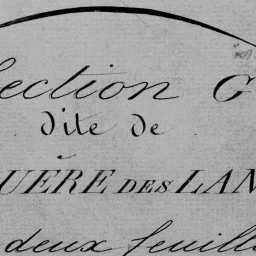 Section G
dite de
UÈRE DES LAN
deux feuill